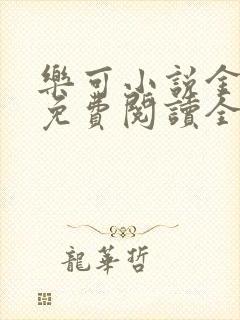 樂可小說全
免費閱讀全
龍華哲